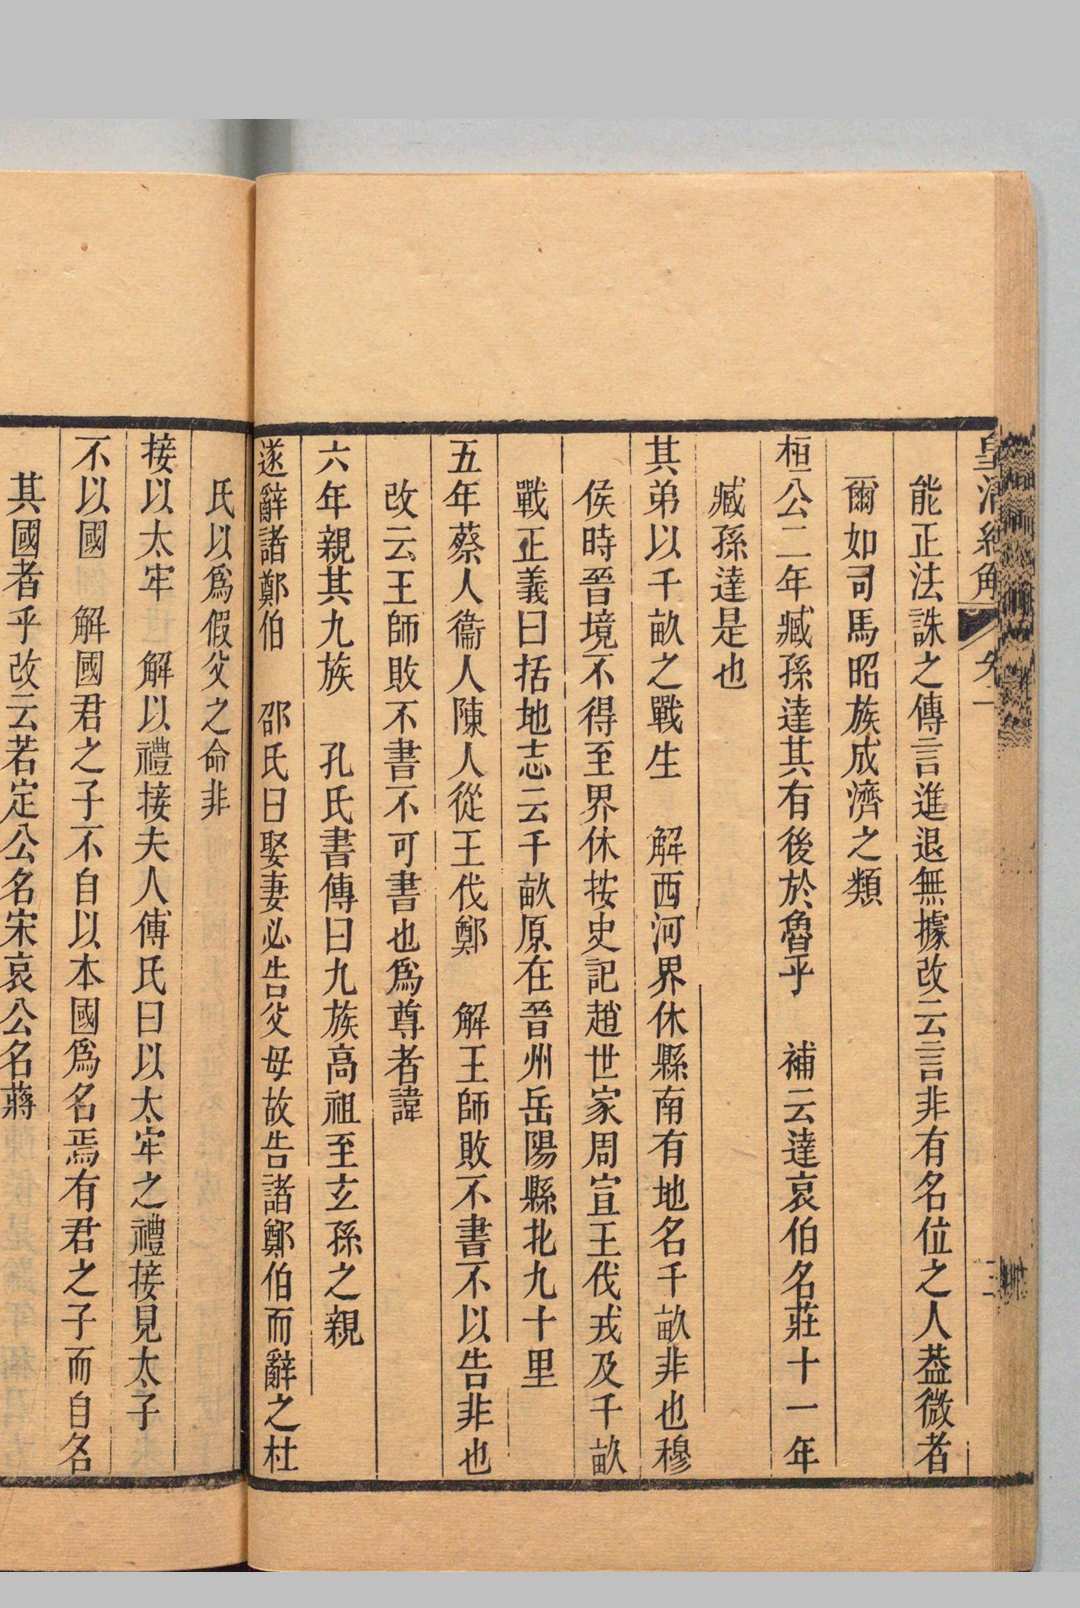 皇清經解 卷一
能正法誅之傳言進退無據改云言非有名位之人葢微者
爾如司馬昭族成濟之類
桓公二年臧孫達其有後於魯乎 補云達哀伯名莊十一年
臧孫達是也
其弟以千畝之戰生 解西河界休縣南有地名千畝非也穆
侯時晉境不得至界休按史記趙世家周宣王伐戎及千畝
戰正義曰括地志云千畝原在晉州岳陽縣北九十里
五年蔡人衞人陳人從王伐鄭 解王師敗不書不以告非也
改云王師敗不書不可書也爲尊者諱
六年親其九族 孔氏書傳曰九族高祖至玄孫之親
遂辭諸鄭伯 邵氏曰娶妻必告父母故告諸鄭伯而辭之杜
氏以爲假父之命非
接以太牢 解以禮接夫人傅氏曰以太牢之禮接見太子
不以國 解國君之子不自以本國爲名焉有君之子而自名
其國者乎改云若定公名宋哀公名蔣